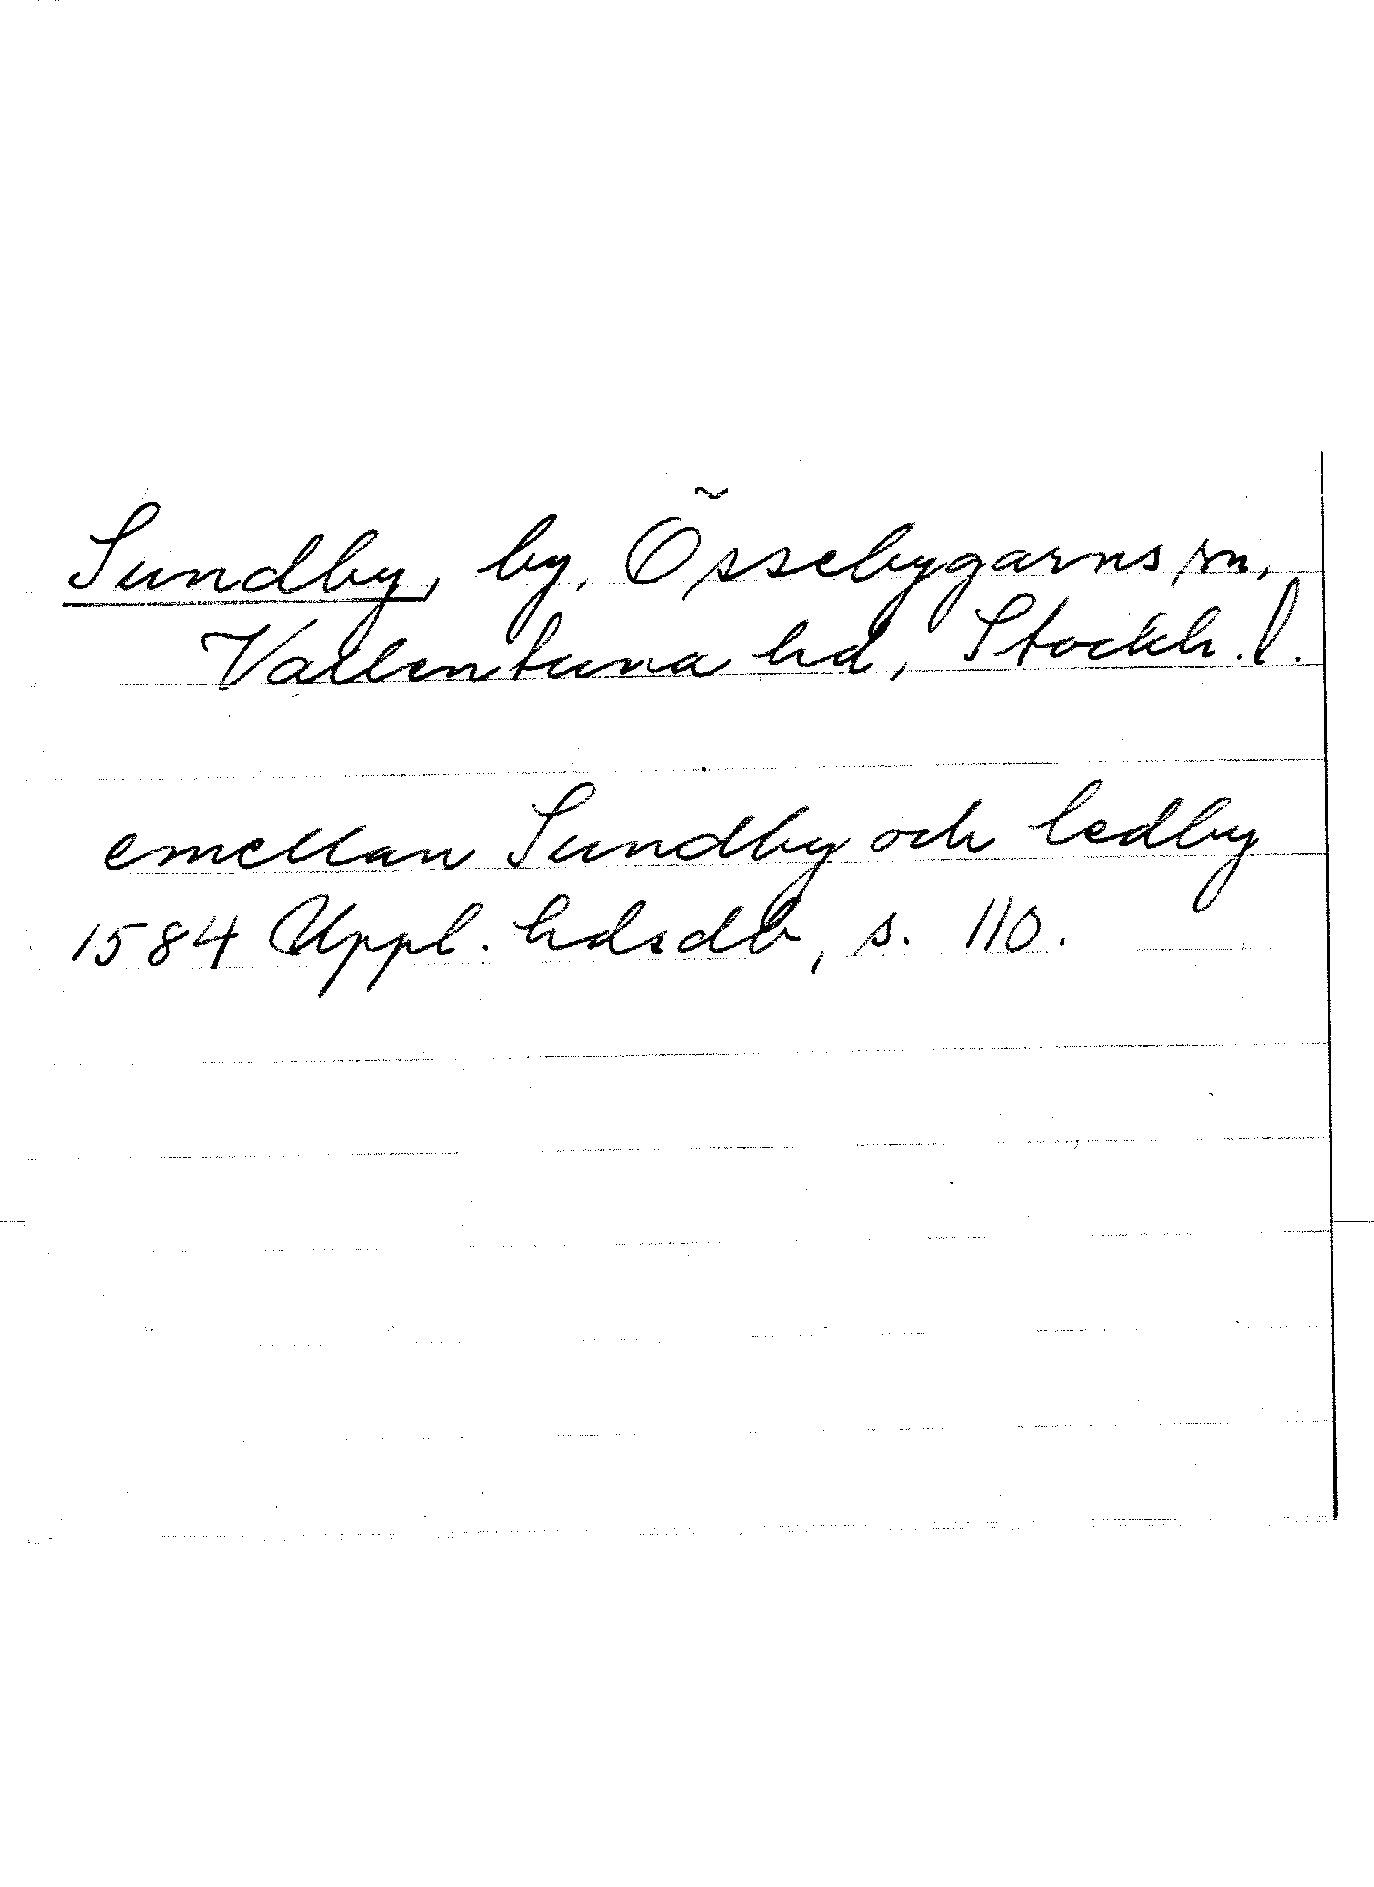 Sundby, by, Össebygarns sn,
Vallentuna hd, Stockh. l.
emellan Sundby och ledby
1584 Uppl. hdsdb, s. 110.